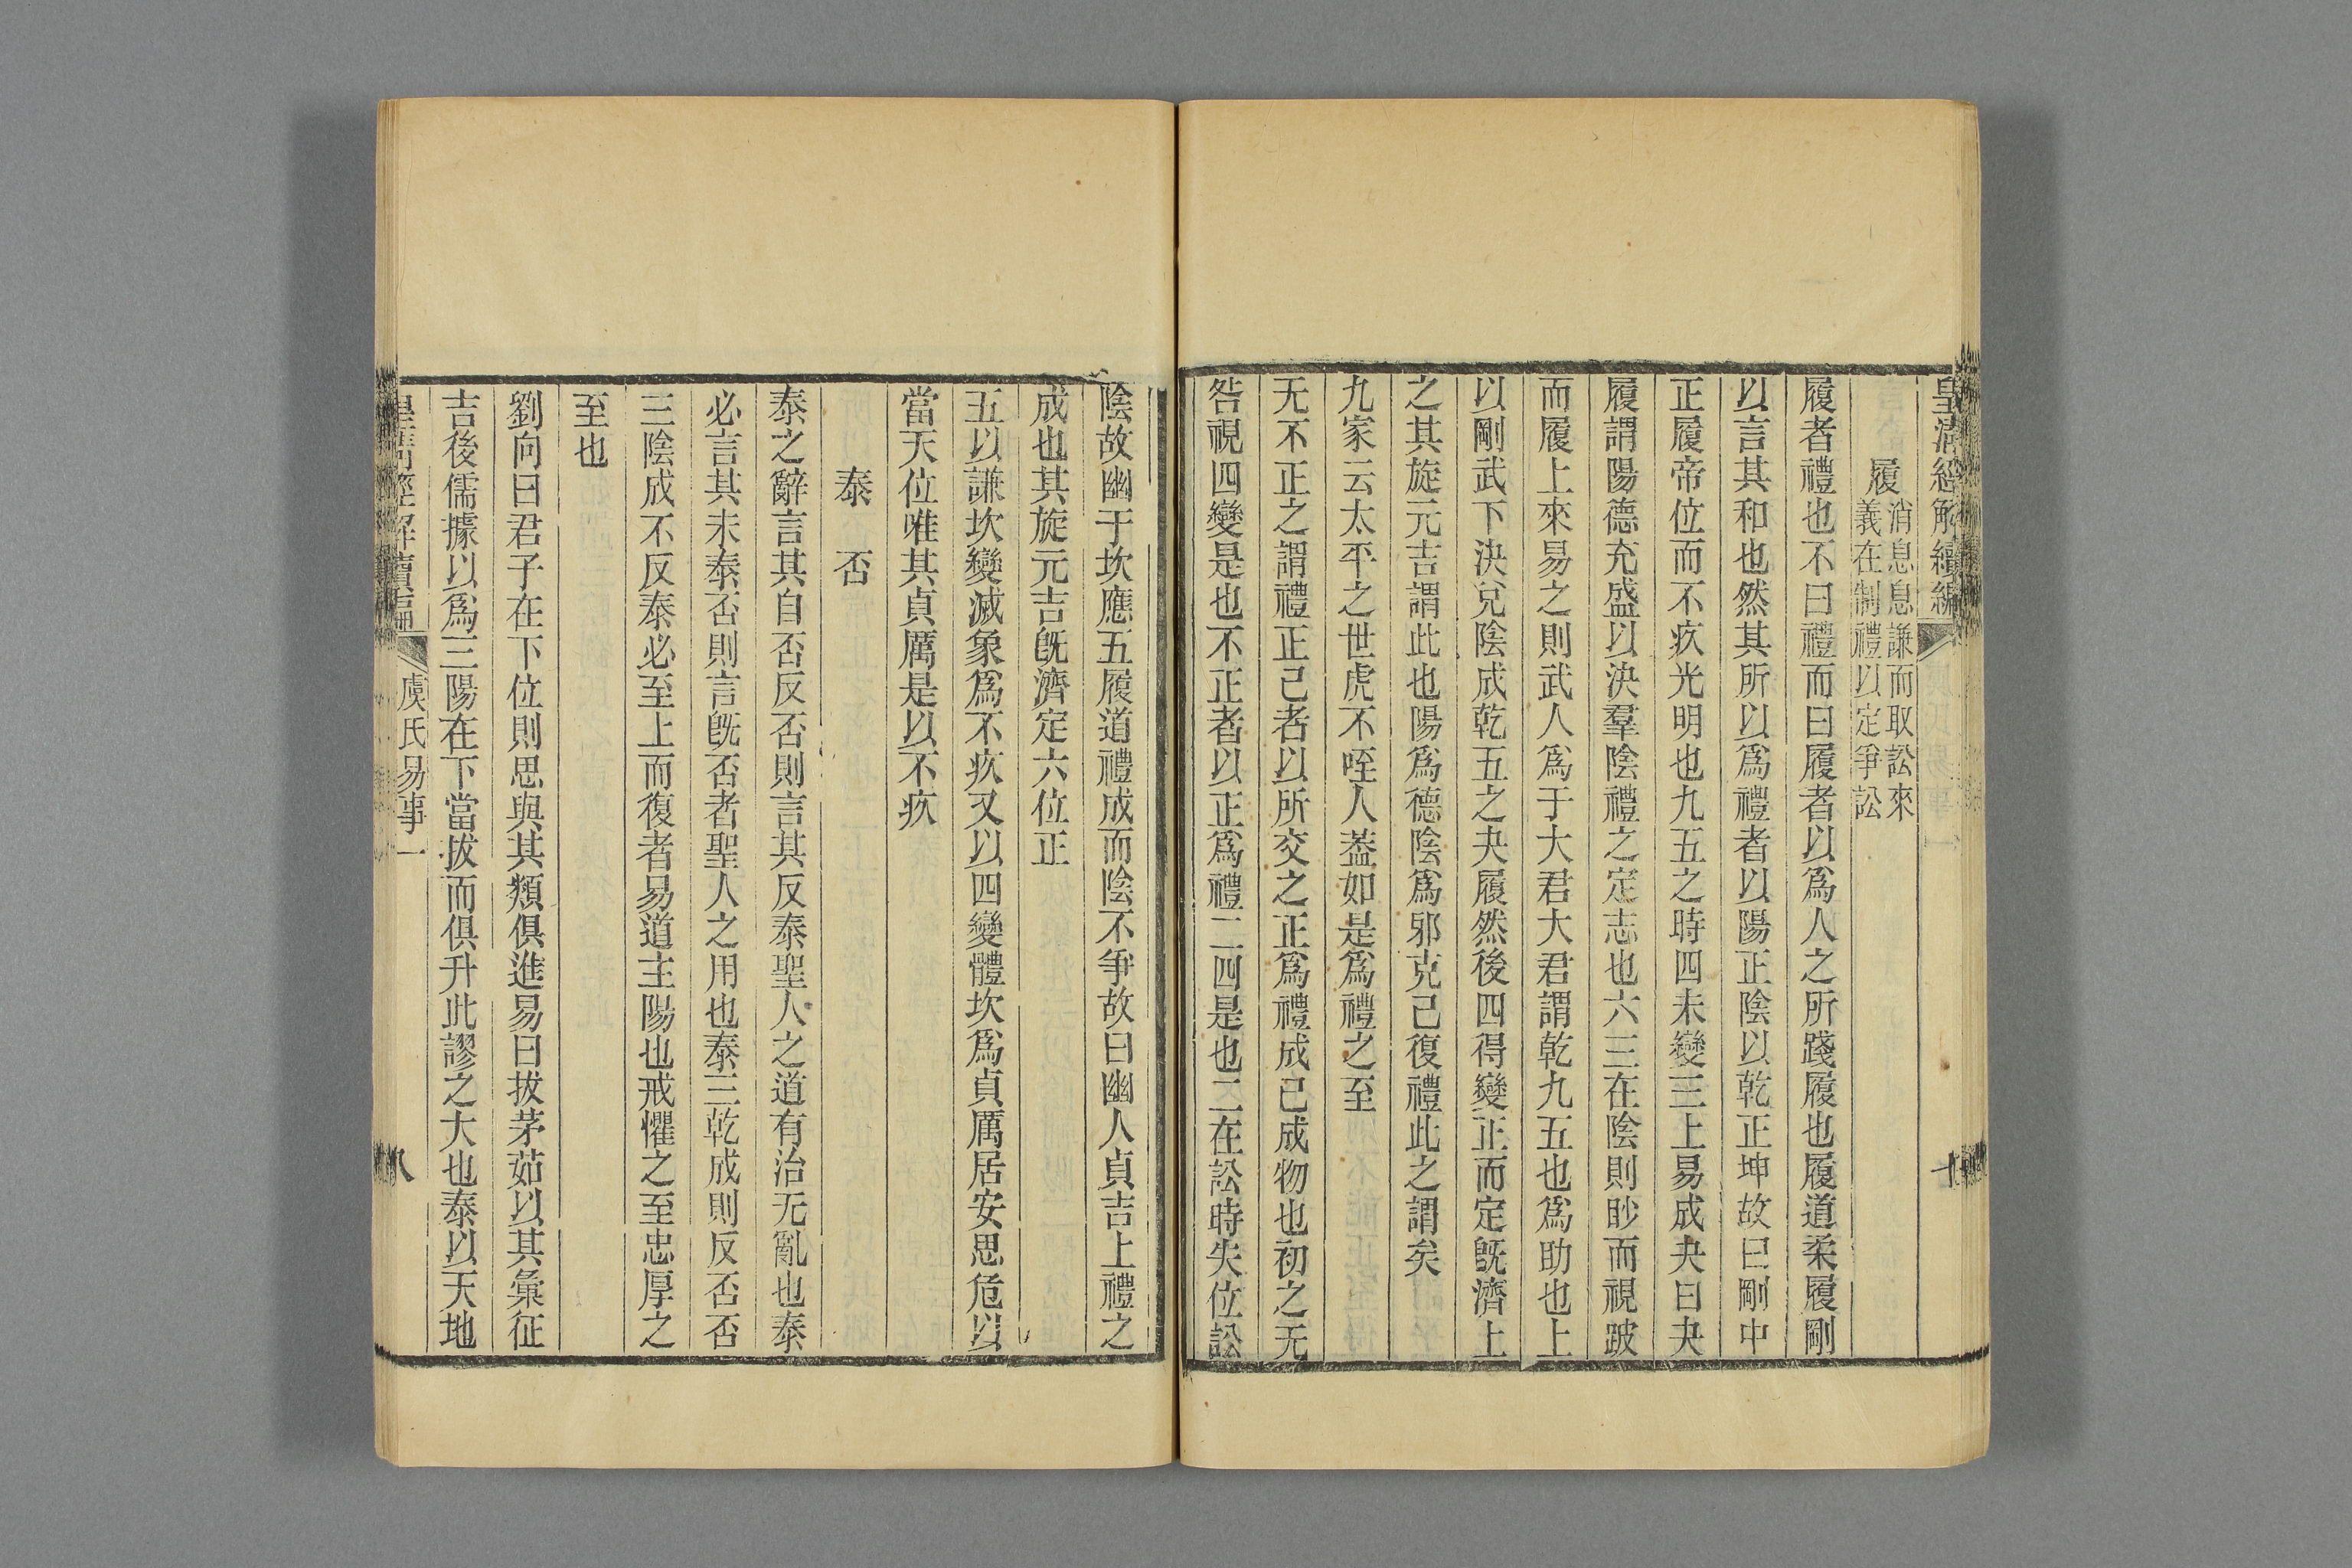 皇清經解續編
履 消息息謙而取訟來
義在制禮以定爭訟
履者禮也不曰禮而曰履者以爲人之所踐履也履道柔履剛
以言其和也然其所以爲禮者以陽正陰以乾正坤故曰剛中
正履帝位而不疚光明也九五之時四未變三上易成夬曰夬
履謂陽德充盛以決羣陰禮之定志也六三在陰則眇而視跛
而履上來易之則武人爲于大君大君謂乾九五也爲助也上
以剛武下決兌陰成乾五之夬履然後四得變正而定旣濟上
之其旋元吉謂此也陽爲德陰爲邪克己復禮此之謂矣
九家云太平之世虎不咥人葢如是爲禮之至
无不正之謂禮正己者以所交之正爲禮成己成物也初之无
咎視四變是也不正者以正爲禮二四是也二在訟時失位訟
陰故幽于坎應五履道禮成而陰不爭故曰幽人貞吉上禮之
成也其旋元吉旣濟定六位正
五以謙坎變滅象爲不疚又以四變體坎爲貞厲居安思危以
當天位唯其貞厲是以不疚
泰 否
泰之辭言其自否反否則言其反泰聖人之道有治无亂也泰
必言其未泰否則言旣否者聖人之用也泰三乾成則反否否
三陰成不反泰必至上而復者易道主陽也戒懼之至忠厚之
至也
劉向曰君子在下位則思與其類俱進易曰拔茅茹以其彙征
吉後儒據以爲三陽在下當拔而俱升此謬之大也泰以天地
皇清經解續編 虞氏易事一 八